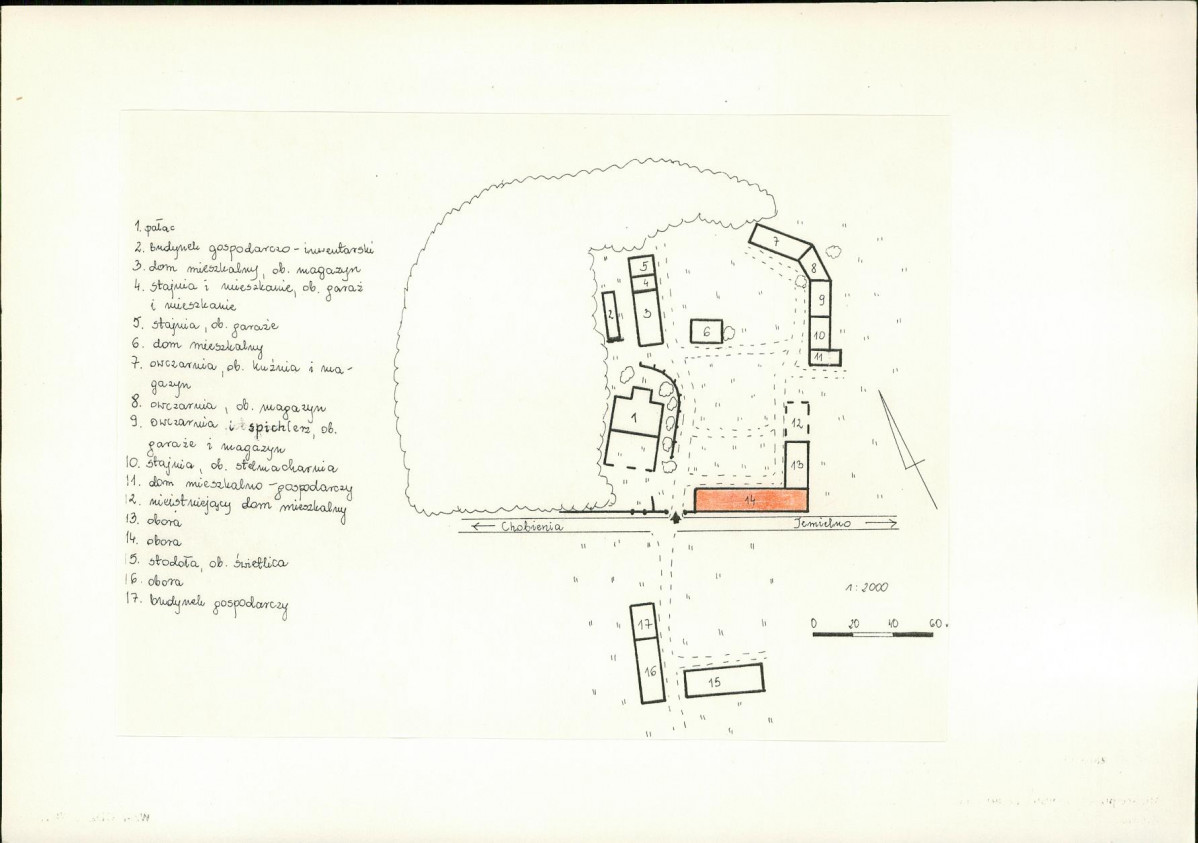 1. pałac
2. budynek gospodarczo-inwentarski
3. dom mieszkalny, ob. magazyn
4. stajnia i mieszkanie, ob. garaż
i mieszkanie
5. stajnia, ob. garaże
6. dom mieszkalny
7. owczarnia, ob. kuźnia i ma-
gazyn
8. owczarnia, ob. magazyn
9. owczarnia i spichlerz, ob.
garaże i magazyn
10. stajnia, ob. stelmacharnia
11. dom mieszkalno-gospodarczy
12. nieistniejący dom mieszkalny
13. obora
14. obora
15. stodoła, ob. świetlica
16. obora
17. budynek gospodarczy
7
8
5
4
3
2
9
6
10
11
1
12
13
14
Chobienia
Jemielno
1:2000
0 20 40 60.
17
16
15